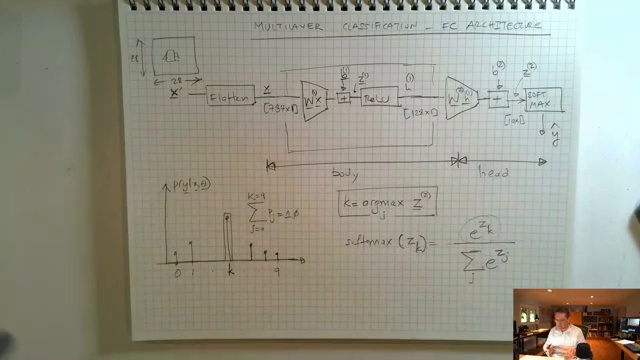 MULTILAYER CLASSIFICATION - FC ARCHITECTURE
28
28
X
Flatten
x
[784x1]
W⁽¹⁾x
b⁽¹⁾
+
z⁽¹⁾
ReLU
h⁽¹⁾
[128x1]
W⁽²⁾h
b⁽²⁾
+
z⁽²⁾
[10x1]
SOFT
MAX
ŷ
body
head
p(y|x,θ)
0 1 . k 9
k = argmax_j z⁽²⁾
softmax(z_k) = e^{z_k} / Σ_j e^{z_j}